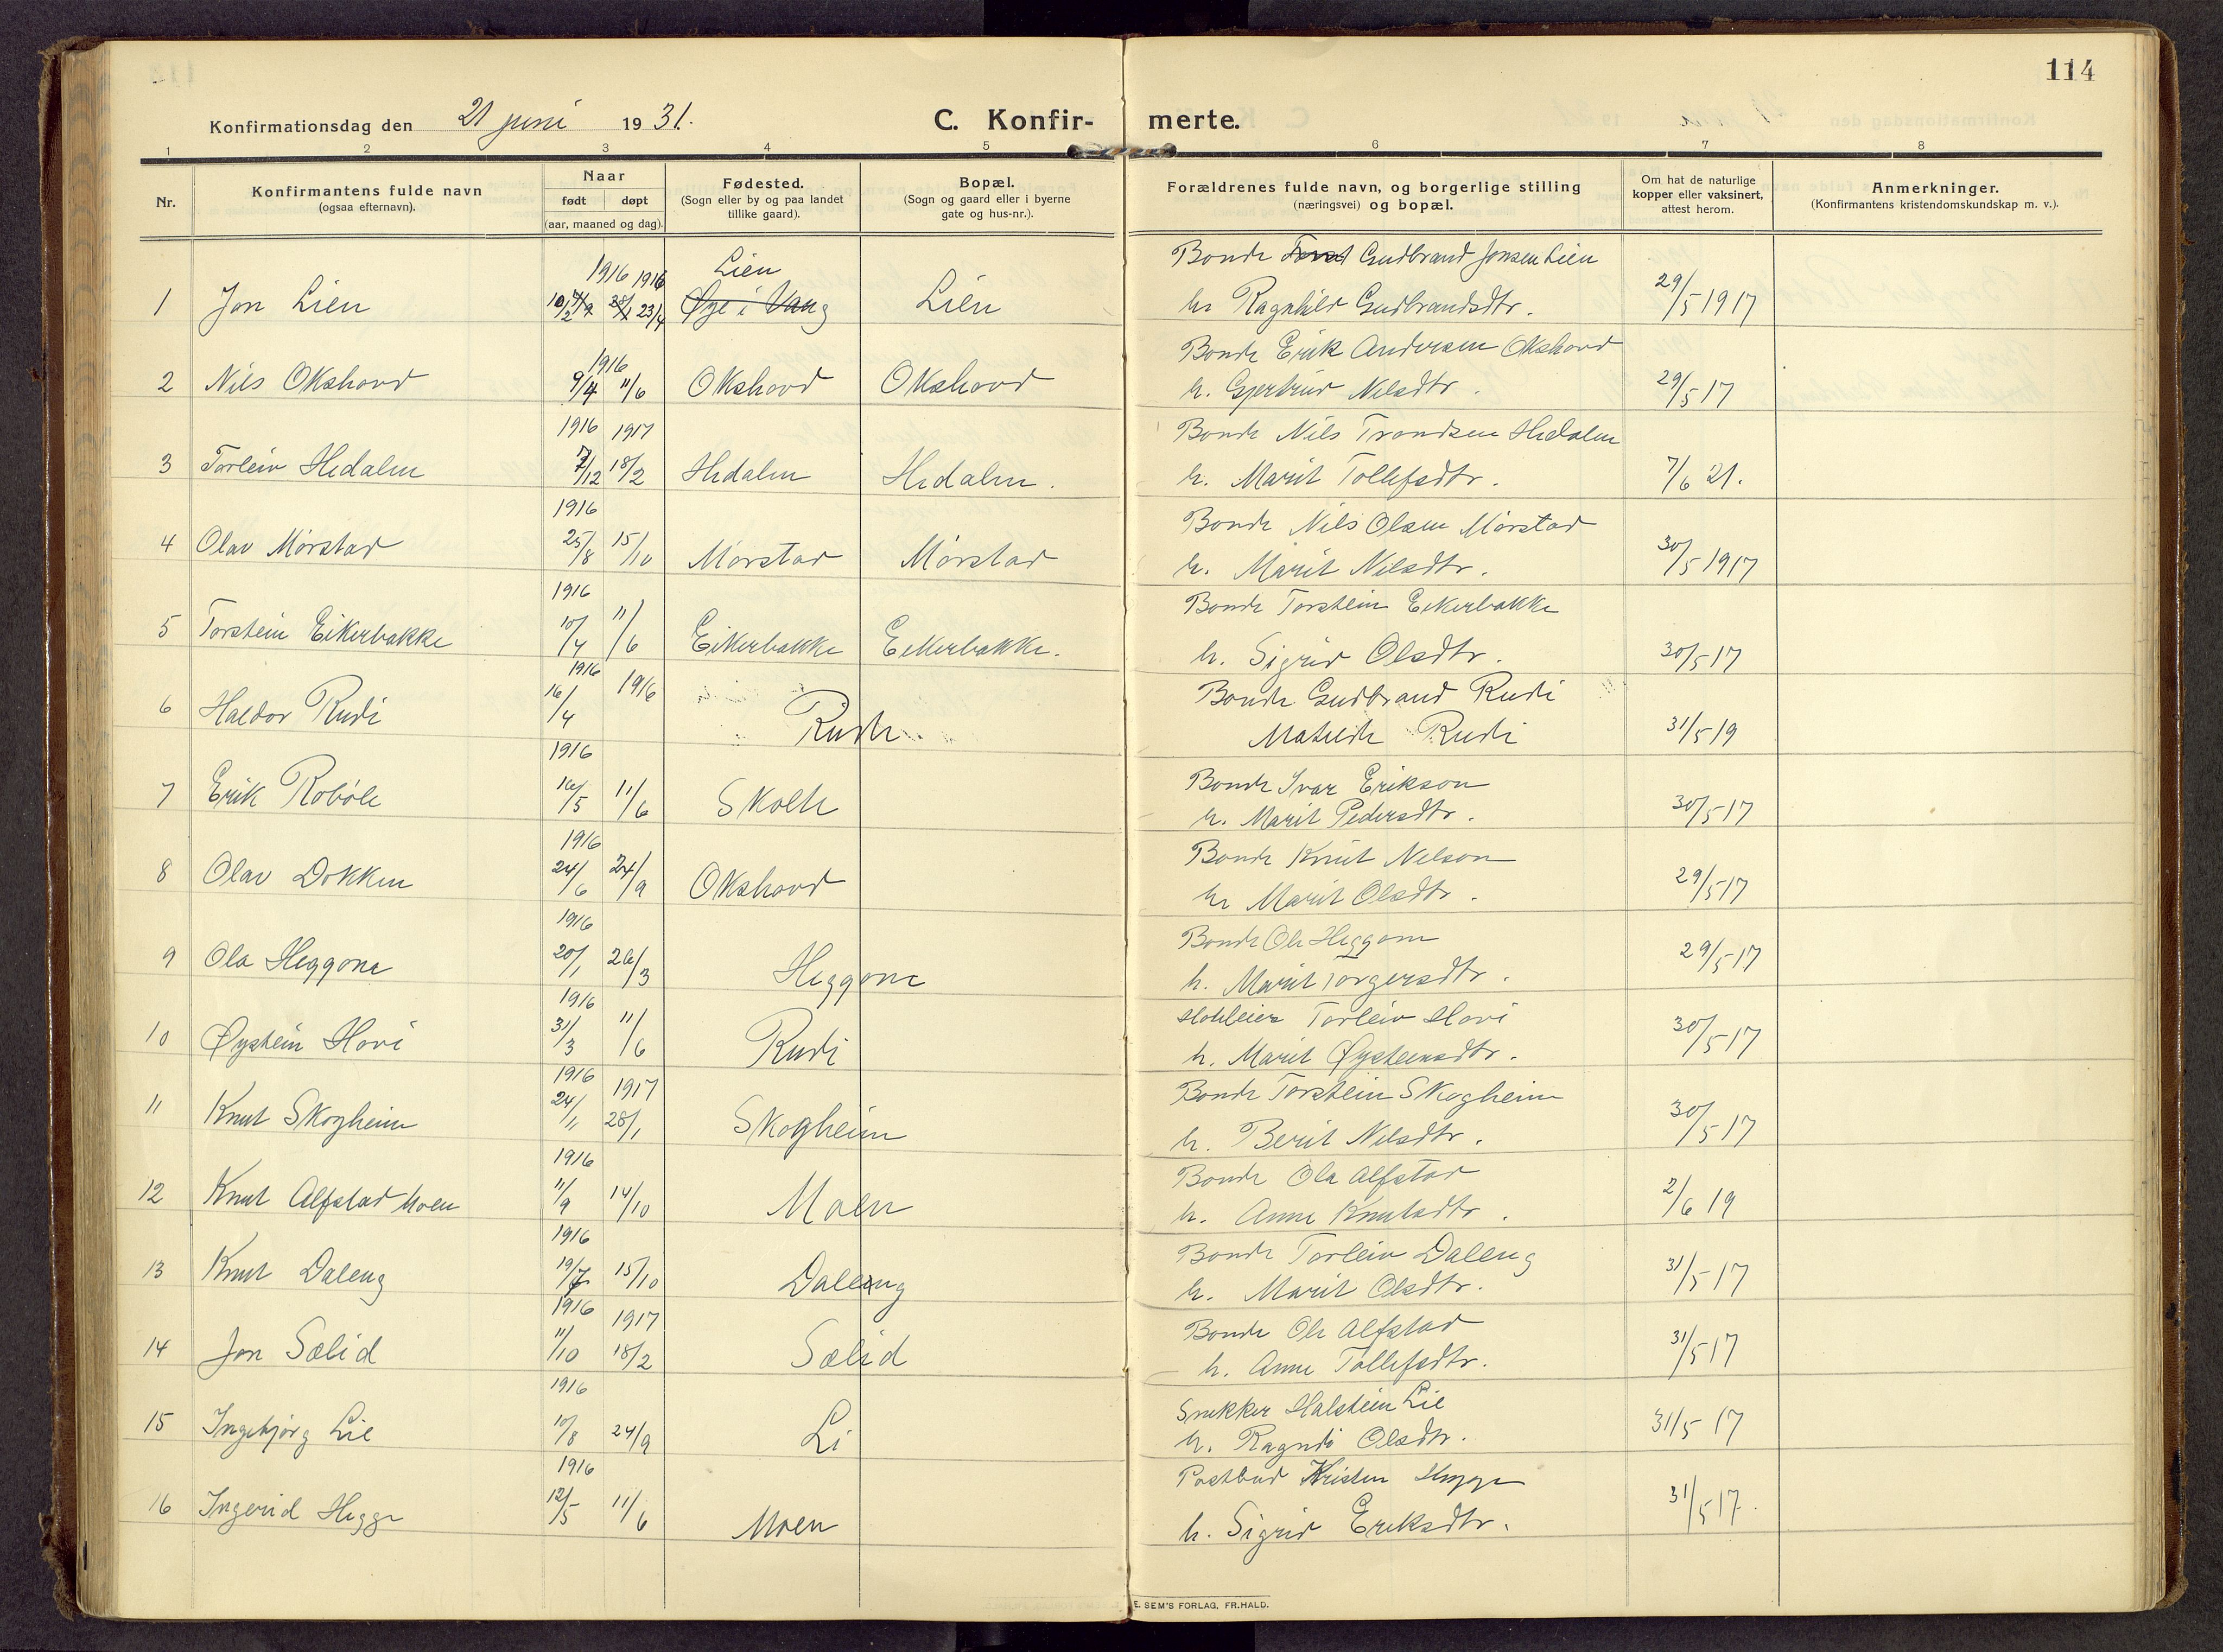 114
Konfirmationsdag den 21 juni 1931.
C. Konfir- merte.
1 2 3 4 5 6 7 8
Nr.
Konfirmantens fulde navn
(ogsaa efternavn).
Naar
født døpt
(aar, maaned og dag).
Fødested.
(Sogn eller by og paa landet
tillike gaard).
Bopæl.
(Sogn og gaard eller i byerne
gate og hus-nr.).
Forældrenes fulde navn, og borgerlige stilling
(næringsvei) og bopæl.
Om hat de naturlige
kopper eller vaksinert,
attest herom.
Anmerkninger.
(Konfirmantens kristendomskundskap m. v.).
1916 1916 Lien Bonde Gudbrand Jonsen Lien
1 Jon Lien 10/2 23/4 Øye i Vang Lien h. Ragnhild Gudbrandsdtr. 29/5 1917
1916 Bonde Erik Andersen Okshovd
2 Nils Okshovd 9/4 11/6 Okshovd Okshovd h. Gjertrud Nilsdtr. 29/5 17
1916 1917 Bonde Nils Trondsen Hedalen
3 Torleiv Hedalen 7/12 18/2 Hedalen Hedalen. h. Marit Tollefsdtr. 7/6 21.
1916 Bonde Nils Olsen Mørstad
4 Olav Mørstad 25/8 15/10 Mørstad Mørstad h. Marit Nilsdtr. 30/5 1917
1916 Bonde Torstein Eikerbakke
5 Torstein Eikerbakke 10/4 11/6 Eikerbakke Eikerbakke. h. Sigrid Olsdtr. 30/5 17
1916 1916 Bonde Gudbrand Rudi
6 Haldor Rudi 16/4 Rudi Matilde Rudi 31/5 19
1916 Bonde Ivar Erikson
7 Erik Robøle 16/5 11/6 Skolte h. Marit Pedersdtr. 30/5 17
1916 Bonde Knut Nelson
8 Olav Dokken 24/6 24/9 Okshovd h. Marit Olsdtr. 29/5 17
1916 Bonde Ole Heggom
9 Ola Heggone 20/1 26/3 Heggone h. Marit Torgersdtr. 29/5 17
1916 Torleiv Hovi
10 Øystein Hovi 31/3 11/6 Rudi h. Marit Øysteinsdtr. 30/5 17
1916 1917 Bonde Torstein Skogheim
11 Knut Skogheim 24/11 28/1 Skogheim h. Berit Nilsdtr. 30/5 17
1916 Bonde Ola Alfstad
12 Knut Alfstad Moen 11/9 14/10 Moen h. Anne Knutsdtr. 2/6 19
1916 Bonde Torleiv Daleng
13 Knut Daleng 19/7 15/10 Daleng h. Marit Olsdtr. 31/5 17
1916 1917 Bonde Ole Alfstad
14 Jon Sælid 11/10 18/2 Sælid h. Anne Tollefsdtr. 31/5 17
1916 Snekker Halstein Lie
15 Ingebjørg Lie 10/8 24/9 Li h. Ragndi Olsdtr. 31/5 17
1916 Postbud Kristen Hegge
16 Ingerid Hegge 12/5 11/6 Moen h. Sigrid Eriksdtr. 31/5 17.
E. SEM'S FORLAG, FR.HALD.